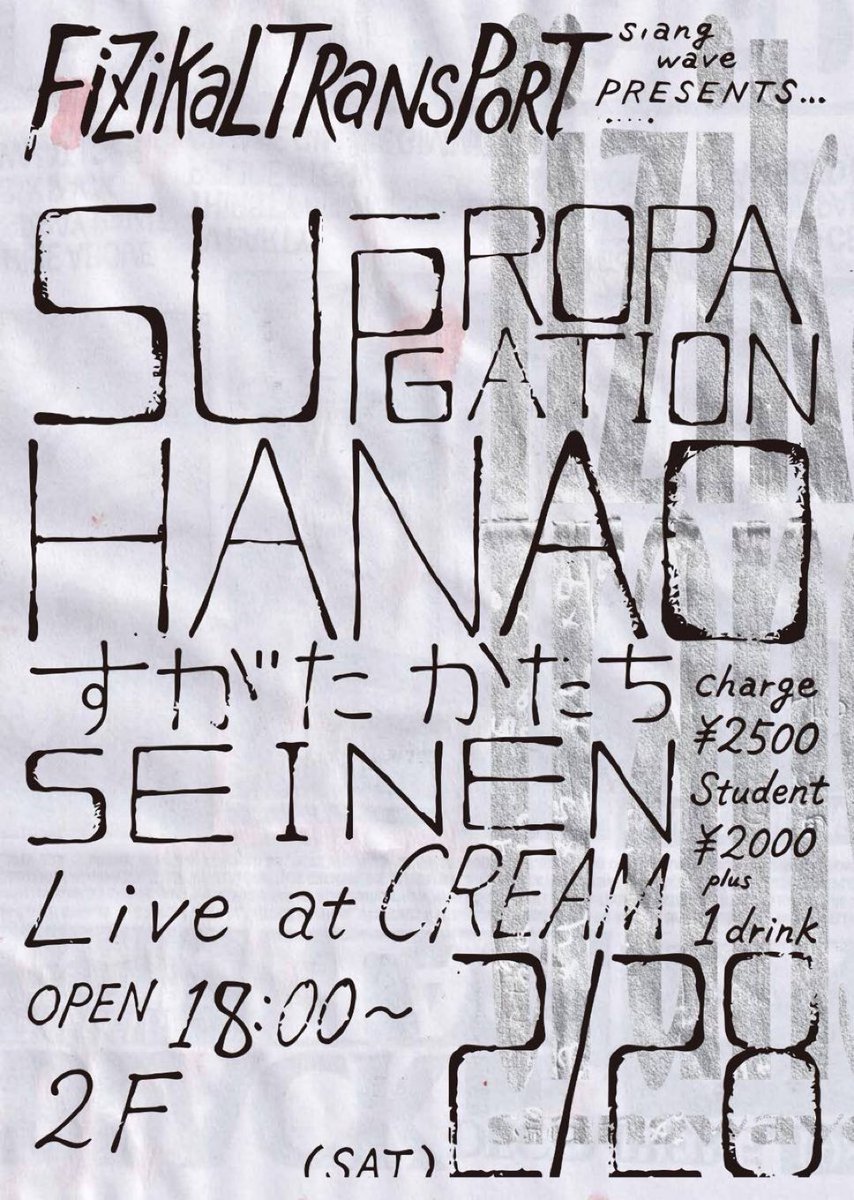 FiZiKaLTRansPoRT
siang
wave
PRESENTS...
SU PROPA
GATION
HANAO
すがたかたち
SEINEN
charge
¥2500
Student
¥2000
plus
1 drink
Live at CREAM
OPEN 18:00～
2F
(SAT)
2/28